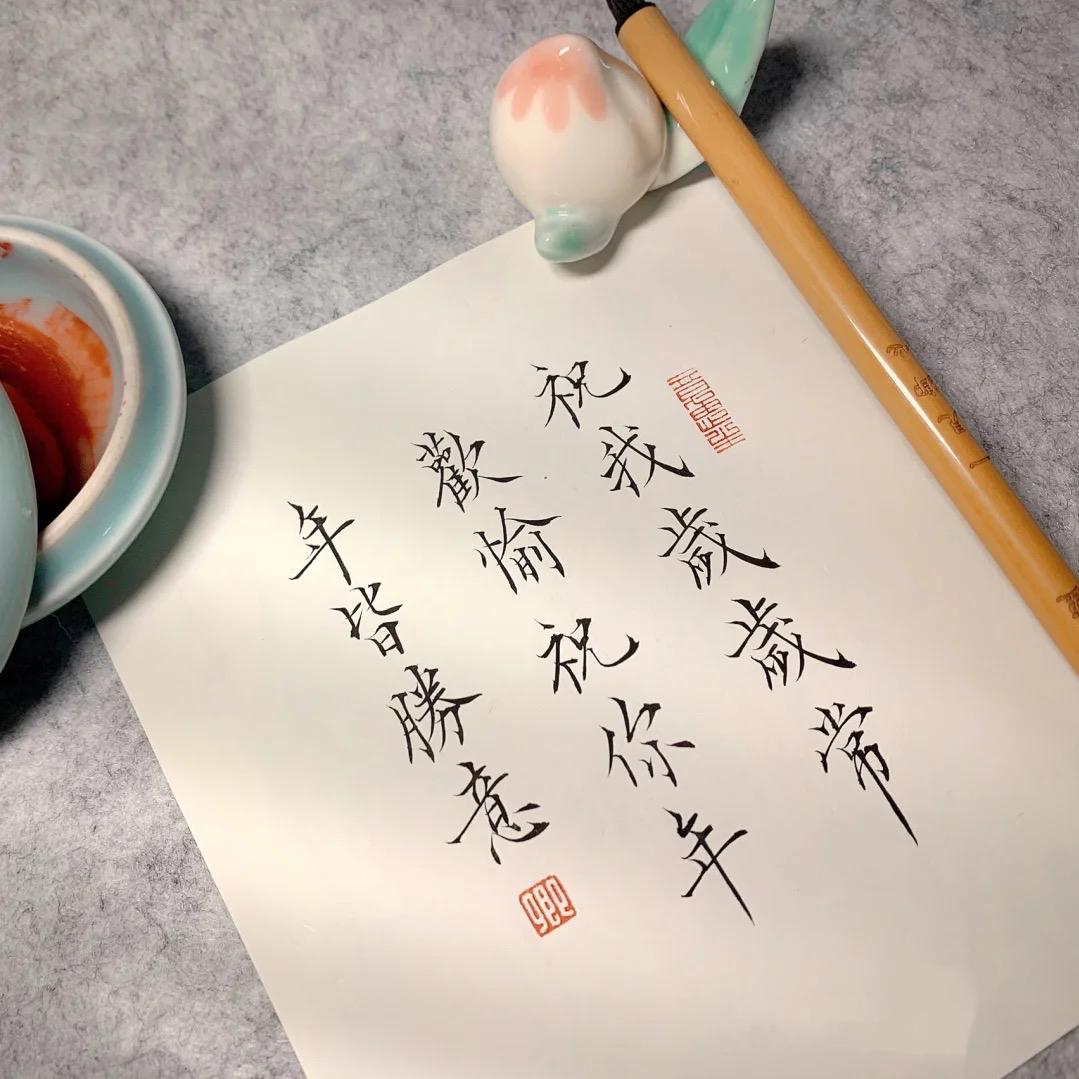 祝我歲歲常
歡愉祝你年
年皆勝意